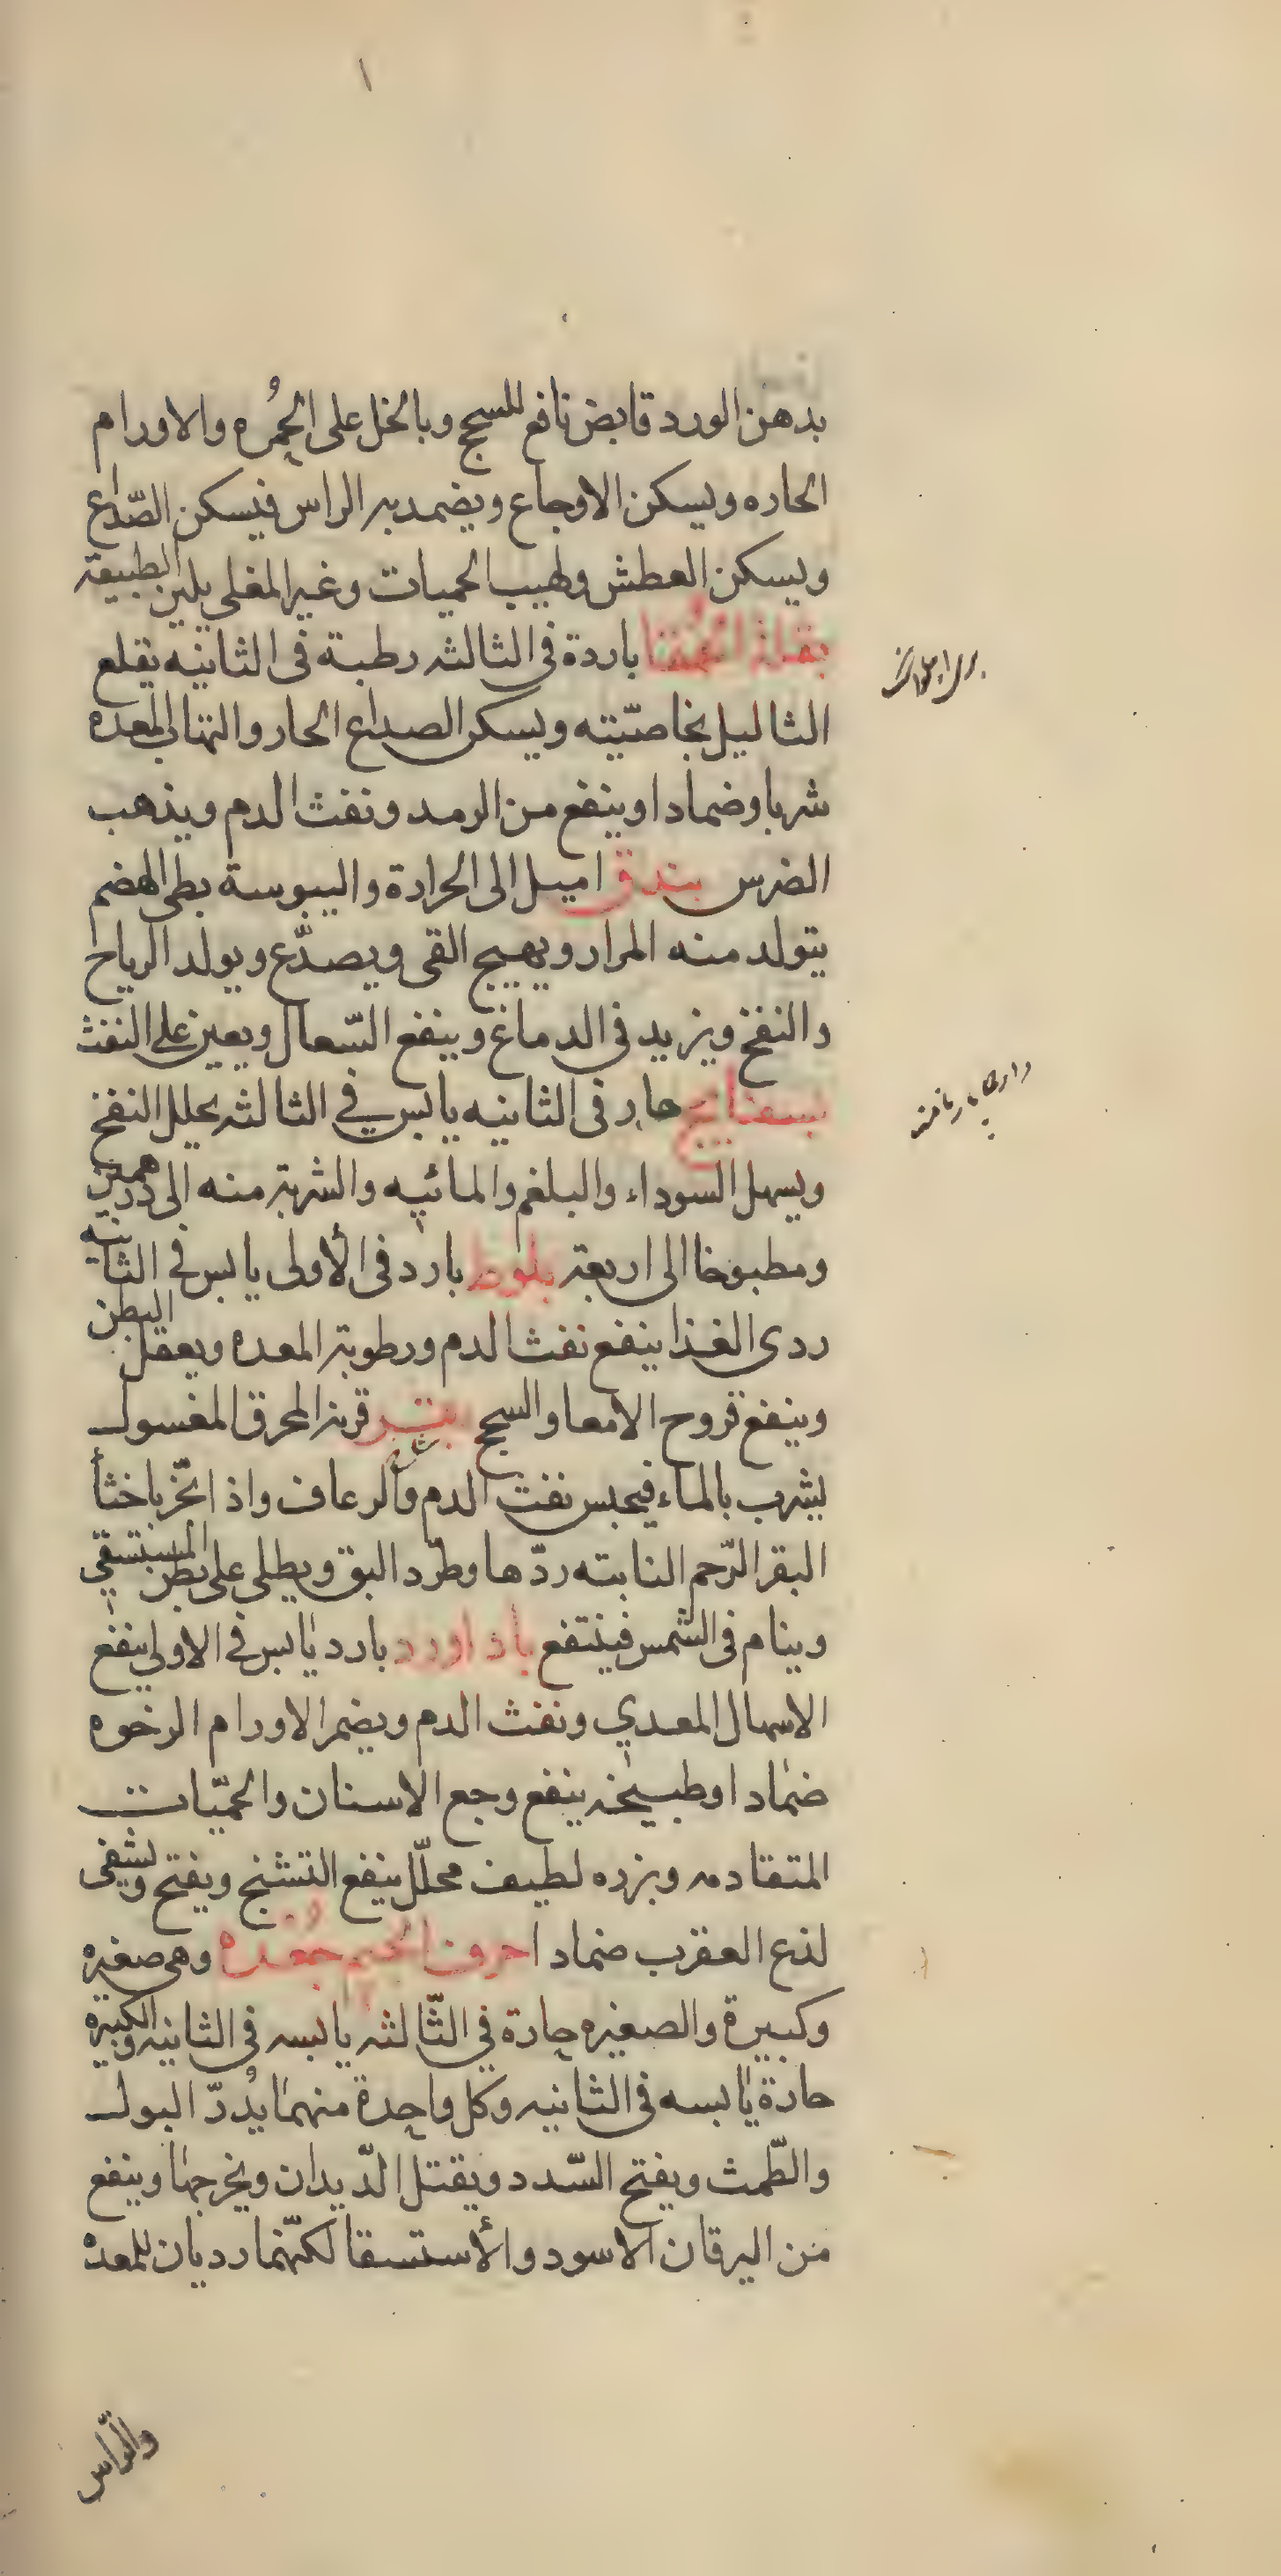 بدهن الورد قابض نافع للسحج وبالخل على الحُمره والاورام
الحاره ويسكن الاوجاع ويضمد به الراس فيسكن الصّداع
ويسكن العطش ولهيب الحميات وغير المغلى يلين الطبيعة
بقلة الحمقا باردة فى الثالثه رطبة فى الثانيه يقلع
الثاليل بخاصّيته ويسكن الصداع الحار والتهاب المعده
شربا وضمادا وينفع من الرمد ونفث الدم ويذهب
الضرس بندق اميل الى الحرارة واليبوسة بطى الهضم
يتولد منه المرار ويهيج القى ويصدّع ويولد الرياح
والنفخ ويزيد فى الدماغ وينفع السّعال ويعين على النفث
بسفايج حار فى الثانيه يابس في الثالثه يحلل النفخ
ويسهل السوداء والبلغم والمائيه والشربة منه الى درهمين
ومطبوخا الى اربعة بلوط بارد فى الأولى يابس فى الثانية
ردى الغذا ينفع نفث الدم ورطوبة المعده ويعقل البطن
وينفع قروح الامعا والسحج بقر قرنه المحرق المغسول
يشرب بالماء فيحبس نفث الدم والرعاف واذا بخّر باخثأ
البقر الرّحم النابته ردّها وطرد البق ويطلى على بطن المستسقي
وينام فى الشمس فينتفع باداورد بارد يابس فى الاولى ينفع
الاسهال المعدي ونفث الدم ويضمر الاورام الرخوه
ضمادا وطبيخه ينفع وجع الاسنان والحمّيات
المتقادمه وبزره لطيف محلّل ينفع التشنج ويفتح ويشفى
لذع العقرب ضمادا حرف الجيم جُعْده وهى صغيره
وكبيرة والصغيره حارة في الثّالثه يابسه فى الثانيه والكبيره
حارة يابسه فى الثانيه وكل واحدة منهما يُدرّ البول
والطّمث ويفتح السّدد ويقتل الدّيدان ويخرجها وينفع
من اليرقان الاسود والأستسقا لكنّهما رديان للمعده
والرّاس